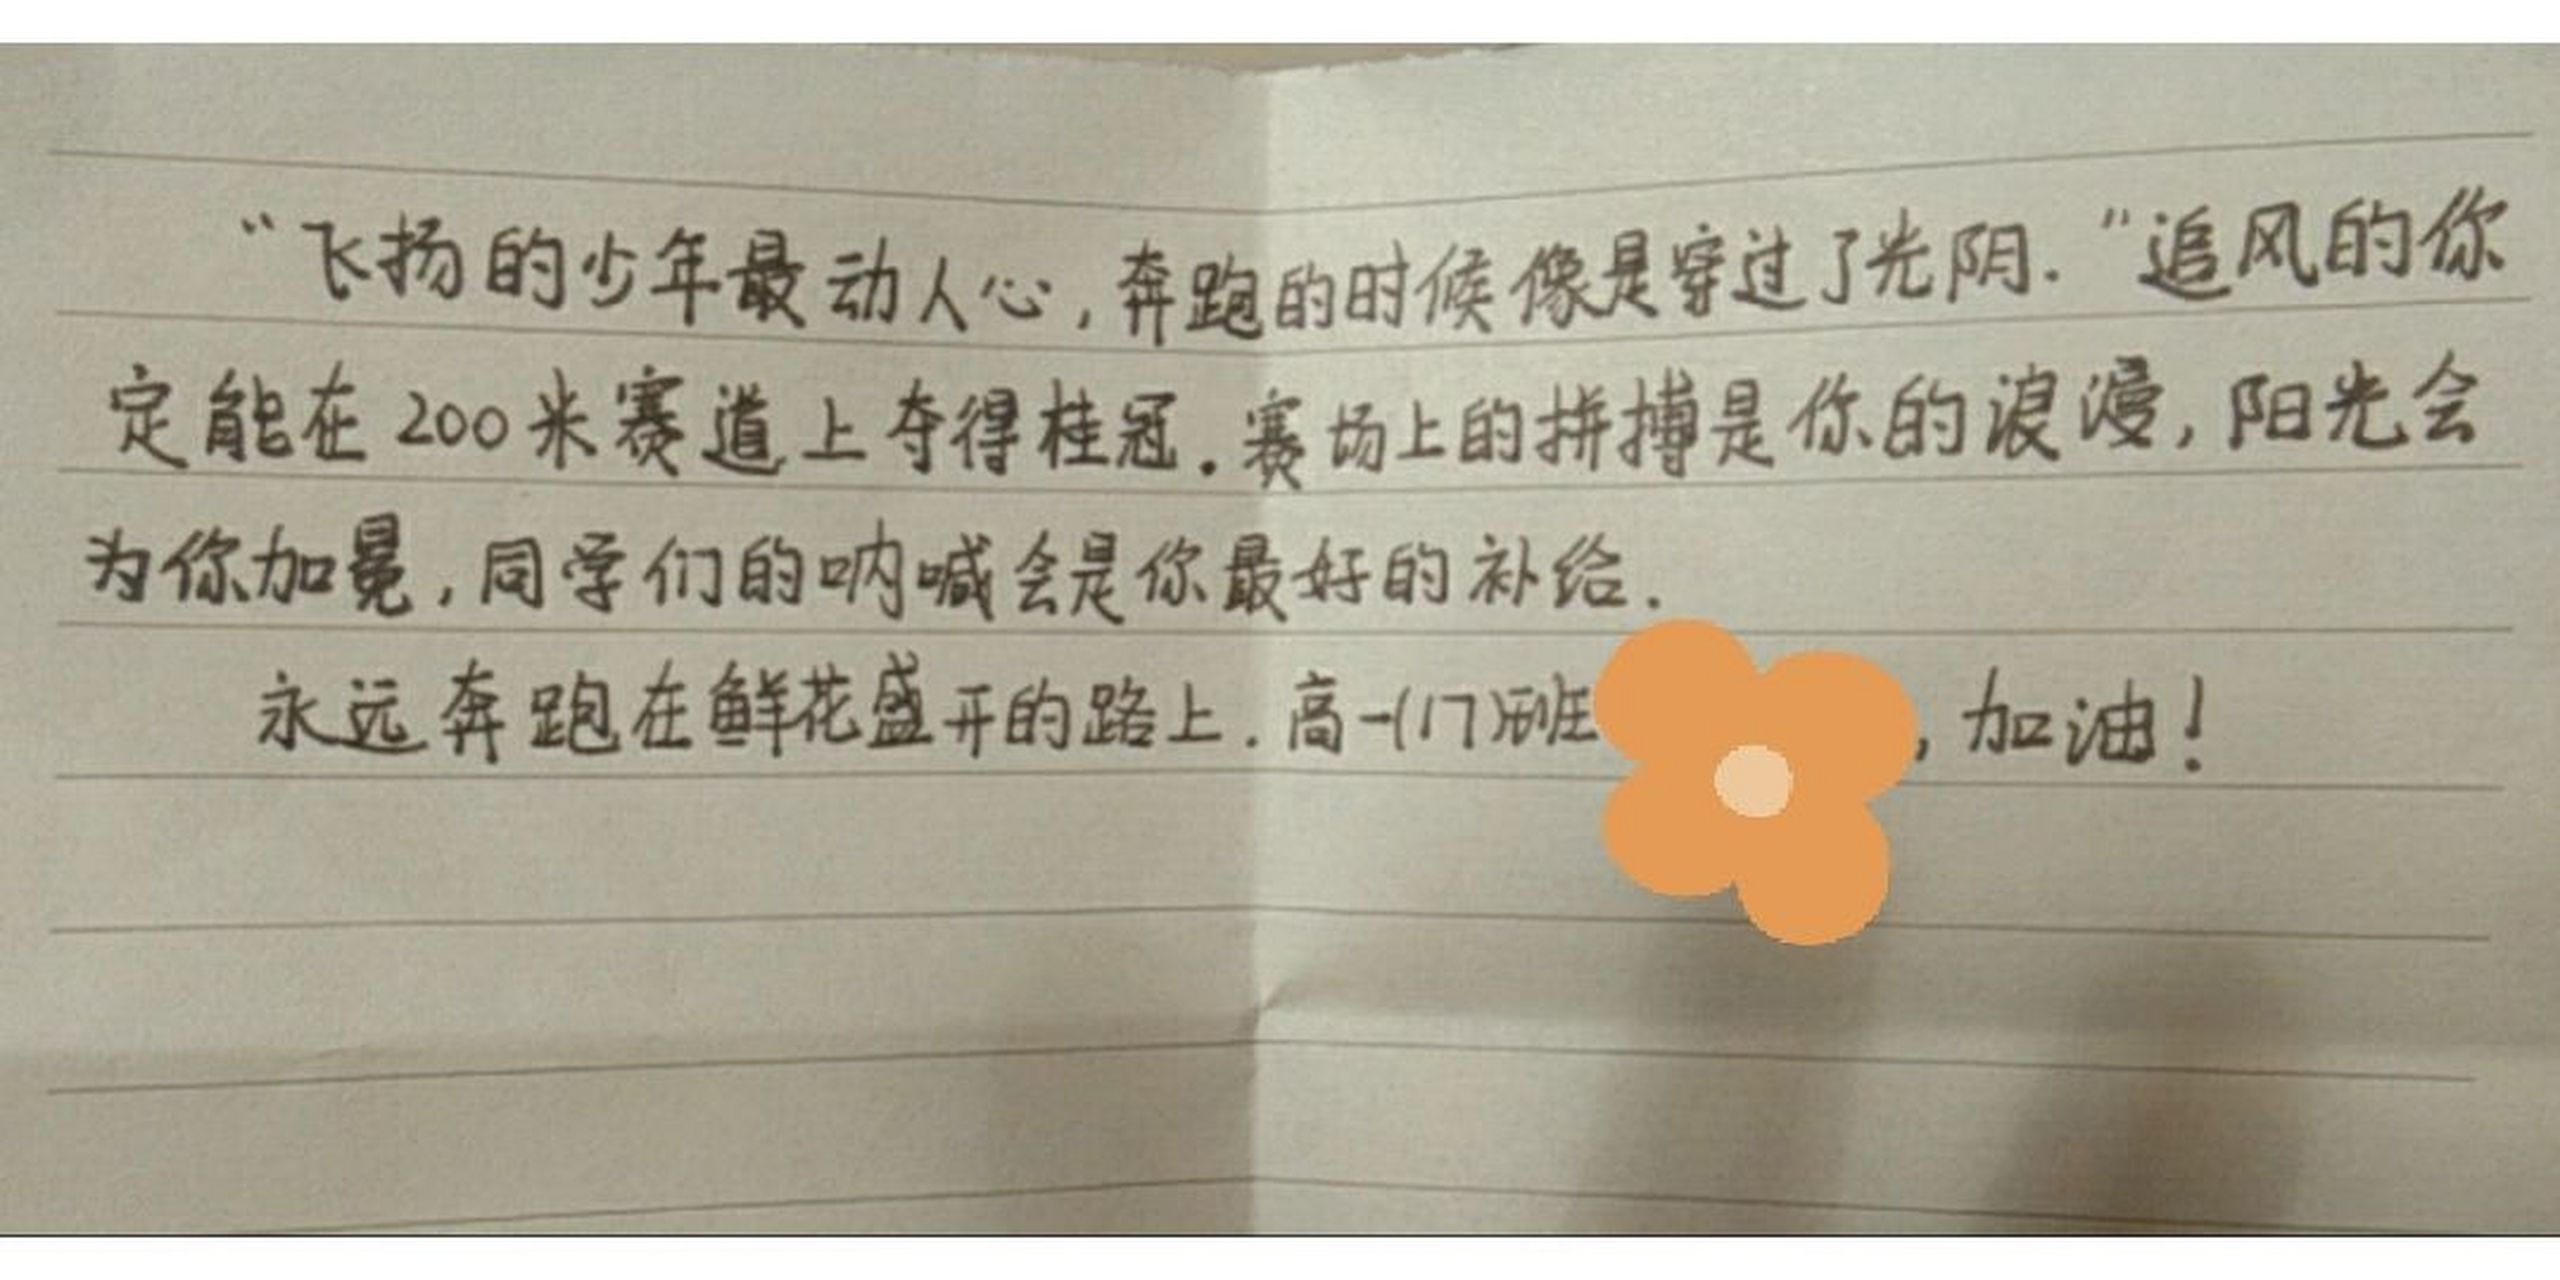 “飞扬的少年最动人心,奔跑的时候像是穿过了光阴.”追风的你
定能在200米赛道上夺得桂冠.赛场上的拼搏是你的浪漫,阳光会
为你加冕,同学们的呐喊会是你最好的补给.
永远奔跑在鲜花盛开的路上.高一(17)班,加油!